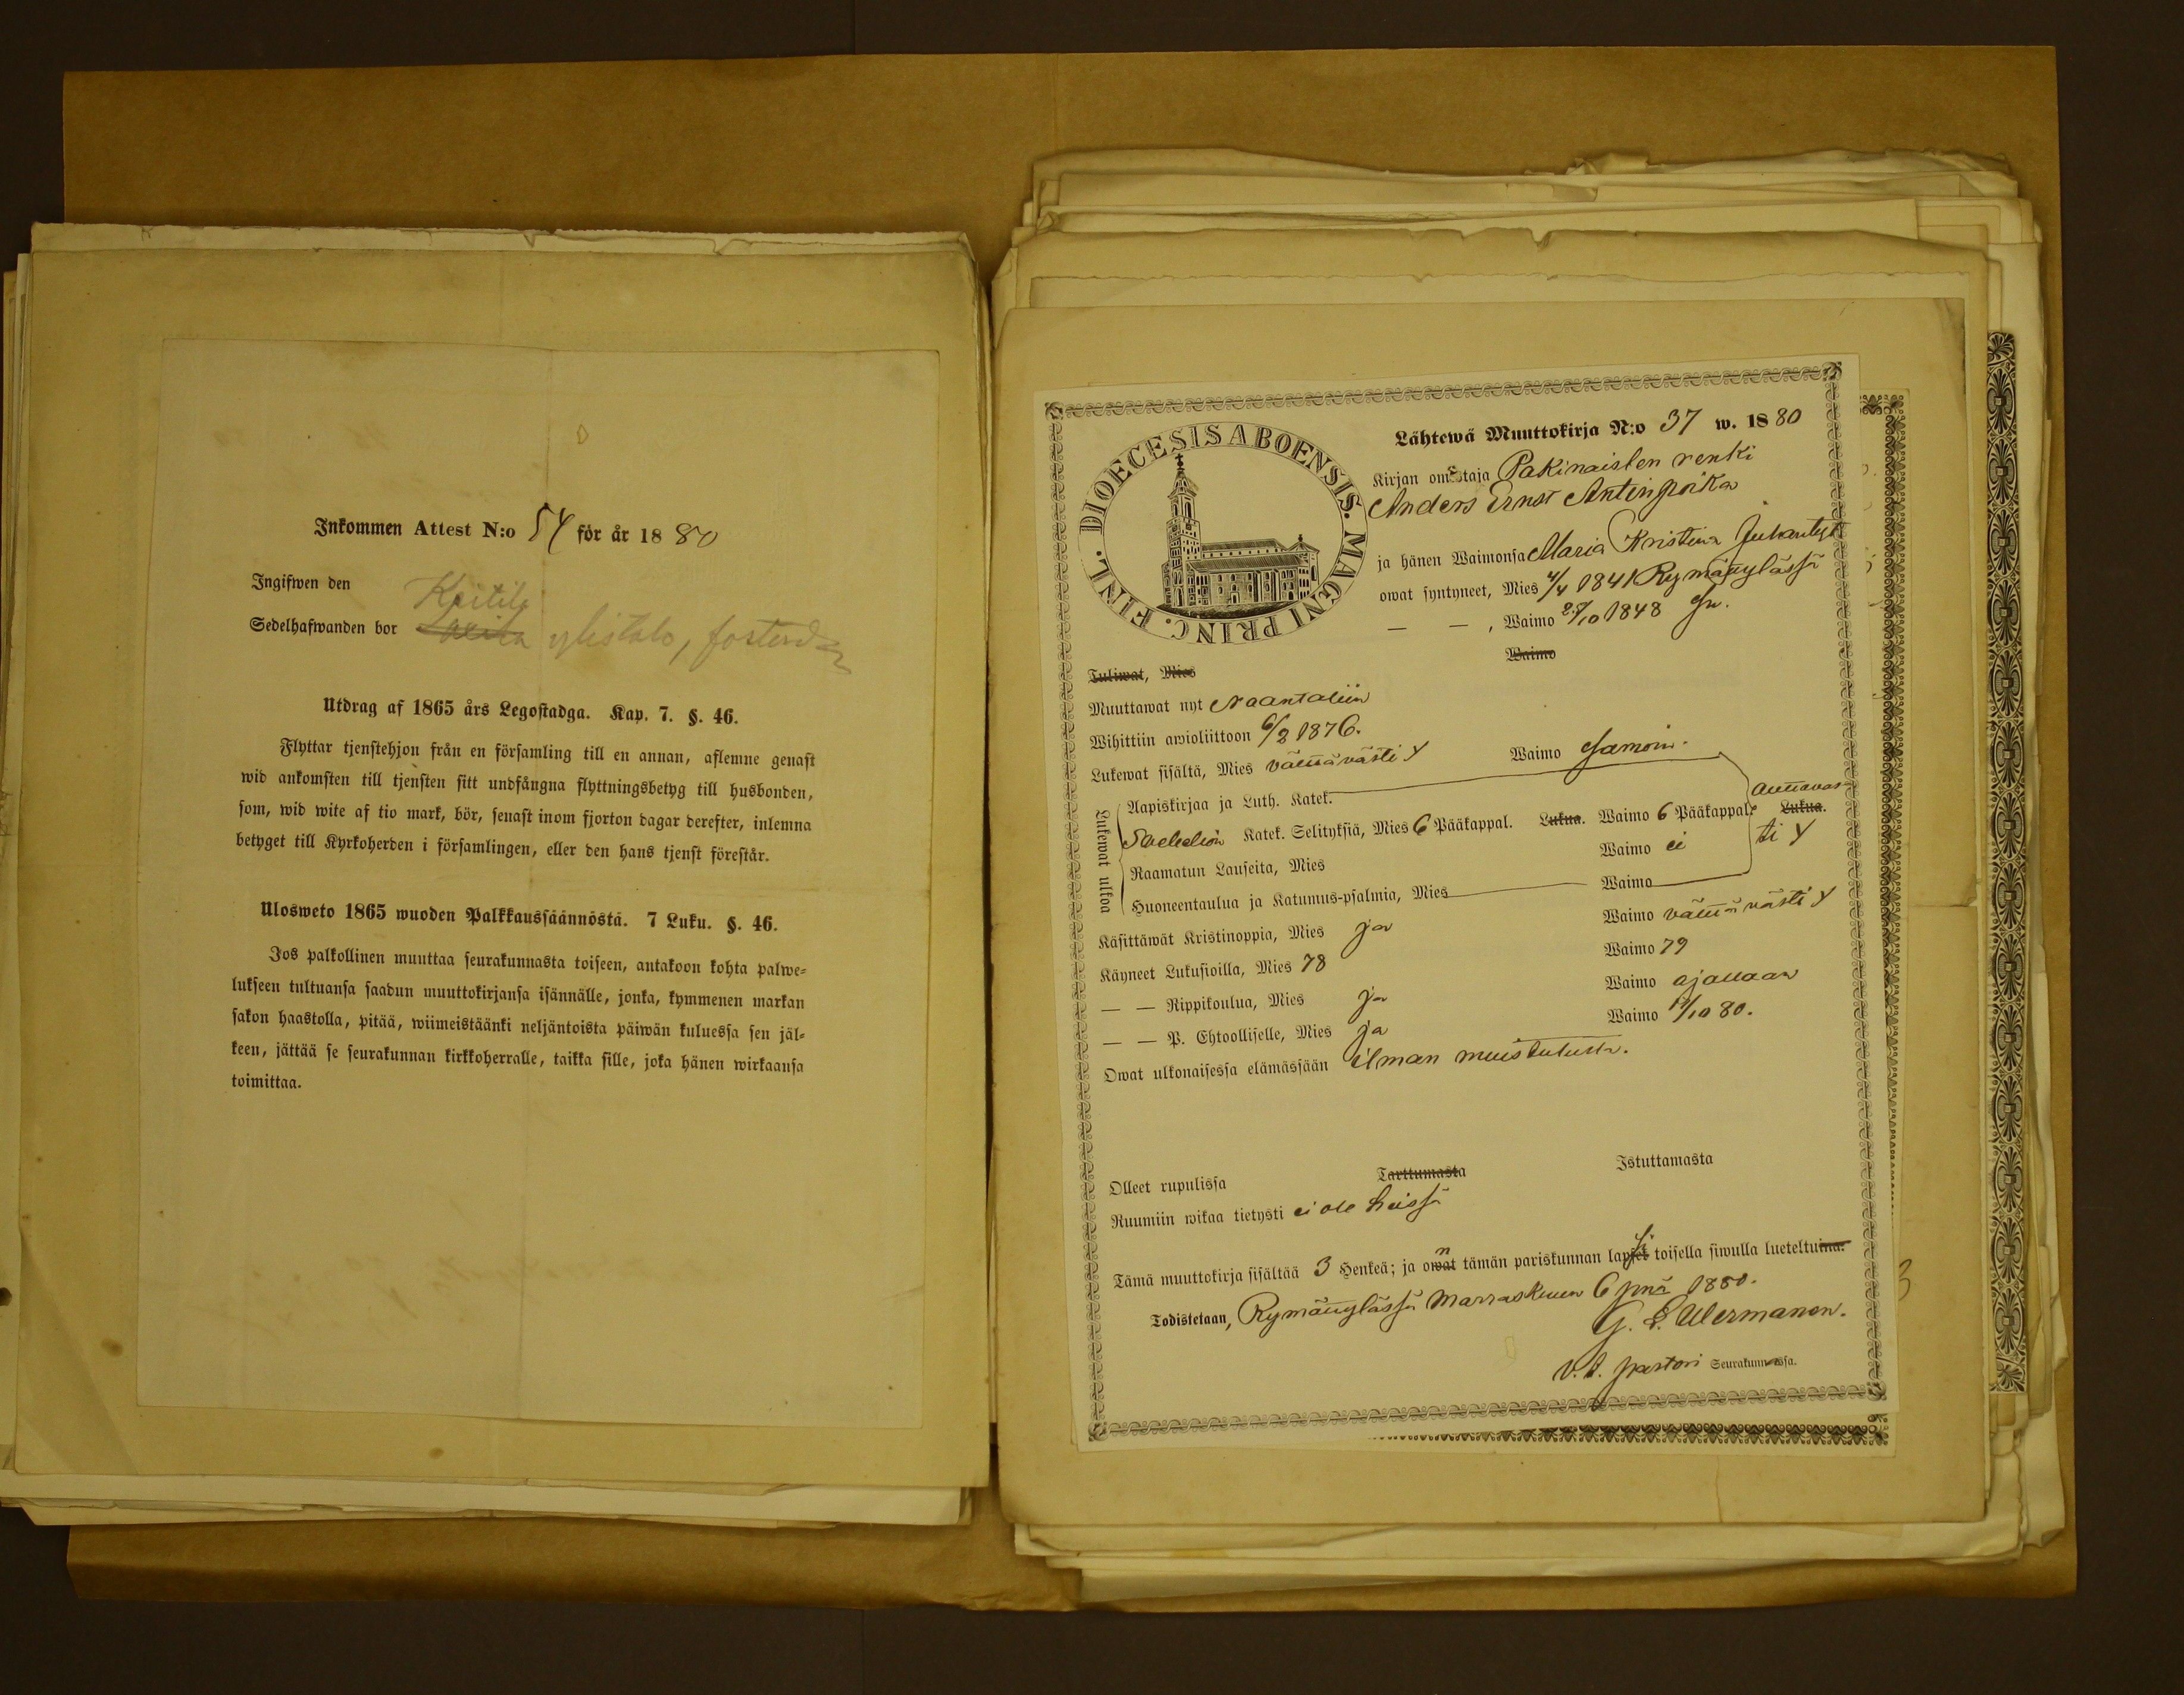 Inkommen Attest N:o 54 för år 1880
Ingifwen den
Sedelhafwanden bor Keitilä ylistalo,
Utdrag af 1865 års Legostadga. Kap. 7. §. 46.
Flyttar tjenstehjon från en församling till en annan, aflemne genast
wid ankomsten till tjensten sitt undfångna flyttningsbetyg till husbonden,
som, wid wite af tio mark, bör, senast inom fjorton dagar derefter, inlemna
betyget till Kyrkoherden i församlingen, eller den hans tjenst förestår.
Ulosweto 1865 wuoden Palkkaussäännöstä. 7 Luku. §. 46.
Jos palkollinen muuttaa seurakunnasta toiseen, antakoon kohta palwe-
lukseen tultuansa saadun muuttokirjansa isännälle, jonka, kymmenen markan
sakon haastolla, pitää, wiimeistäänki neljäntoista päiwän kuluessa sen jäl-
keen, jättää se seurakunnan kirkkoherralle, taikka sille, joka hänen wirkaansa
toimittaa.
DIOECESIS ABOENSIS. MAGNI PRINC. FINL.
Lähtewä Muuttokirja N:o 37 w. 1880
Kirjan omistaja Pakinaisten renki
Anders Ernst Antinpoika
ja hänen Waimonsa Maria Kristina Juhantyt
owat syntyneet, Mies 4/4 1841 Rymättylässä
— — , Waimo 25/10 1848 Sn.
Tuliwat, Mies Waimo
Muuttawat nyt Naantaliin
Wihittiin awioliittoon 6/2 1876.
Lukewat sisältä, Mies välttävästi Y Waimo Samoin.
Lukewat ulkoa
Aapiskirjaa ja Luth. Katek.
Svebelion Katek. Selityksiä, Mies 6 Pääkappal. Lukua. Waimo 6 Pääkappal. Lukua.
auttavasti Y
Raamatun Lauseita, Mies Waimo ei
Huoneentaulua ja Katumus-psalmia, Mies Waimo
Käsittäwät Kristinoppia, Mies ja Waimo välttävästi Y
Käyneet Lukusioilla, Mies 78 Waimo 79
— — Rippikoulua, Mies ja Waimo ajallaan
— — P. Ehtoolliselle, Mies ja Waimo 17/10 80.
Owat ulkonaisessa elämässään ilman muistutusta.
Olleet rupulissa Tarttumasta Istuttamasta
Ruumiin wikaa tietysti ei ole heissä
Tämä muuttokirja sisältää 3 Henkeä; ja on tämän pariskunnan lapsi toisella siwulla lueteltuina.
Todistetaan, Rymättylässä Marraskuun 6 pnä 1880.
G. E. Alermanen.
V.t. pastori Seurakunnassa.